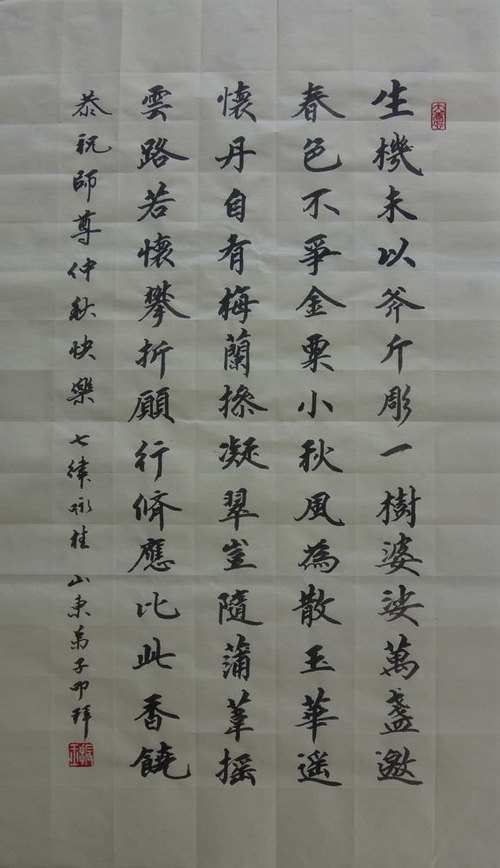 生機未以斧斤彫一樹婆娑萬盞邀
春色不爭金粟小秋風為散玉華遥
懷丹自有梅蘭操凝翠豈隨蒲葦摇
雲路若懷攀折願行脩應比此香饒
恭祝師尊仲秋快樂 七律咏桂 山東弟子叩拜